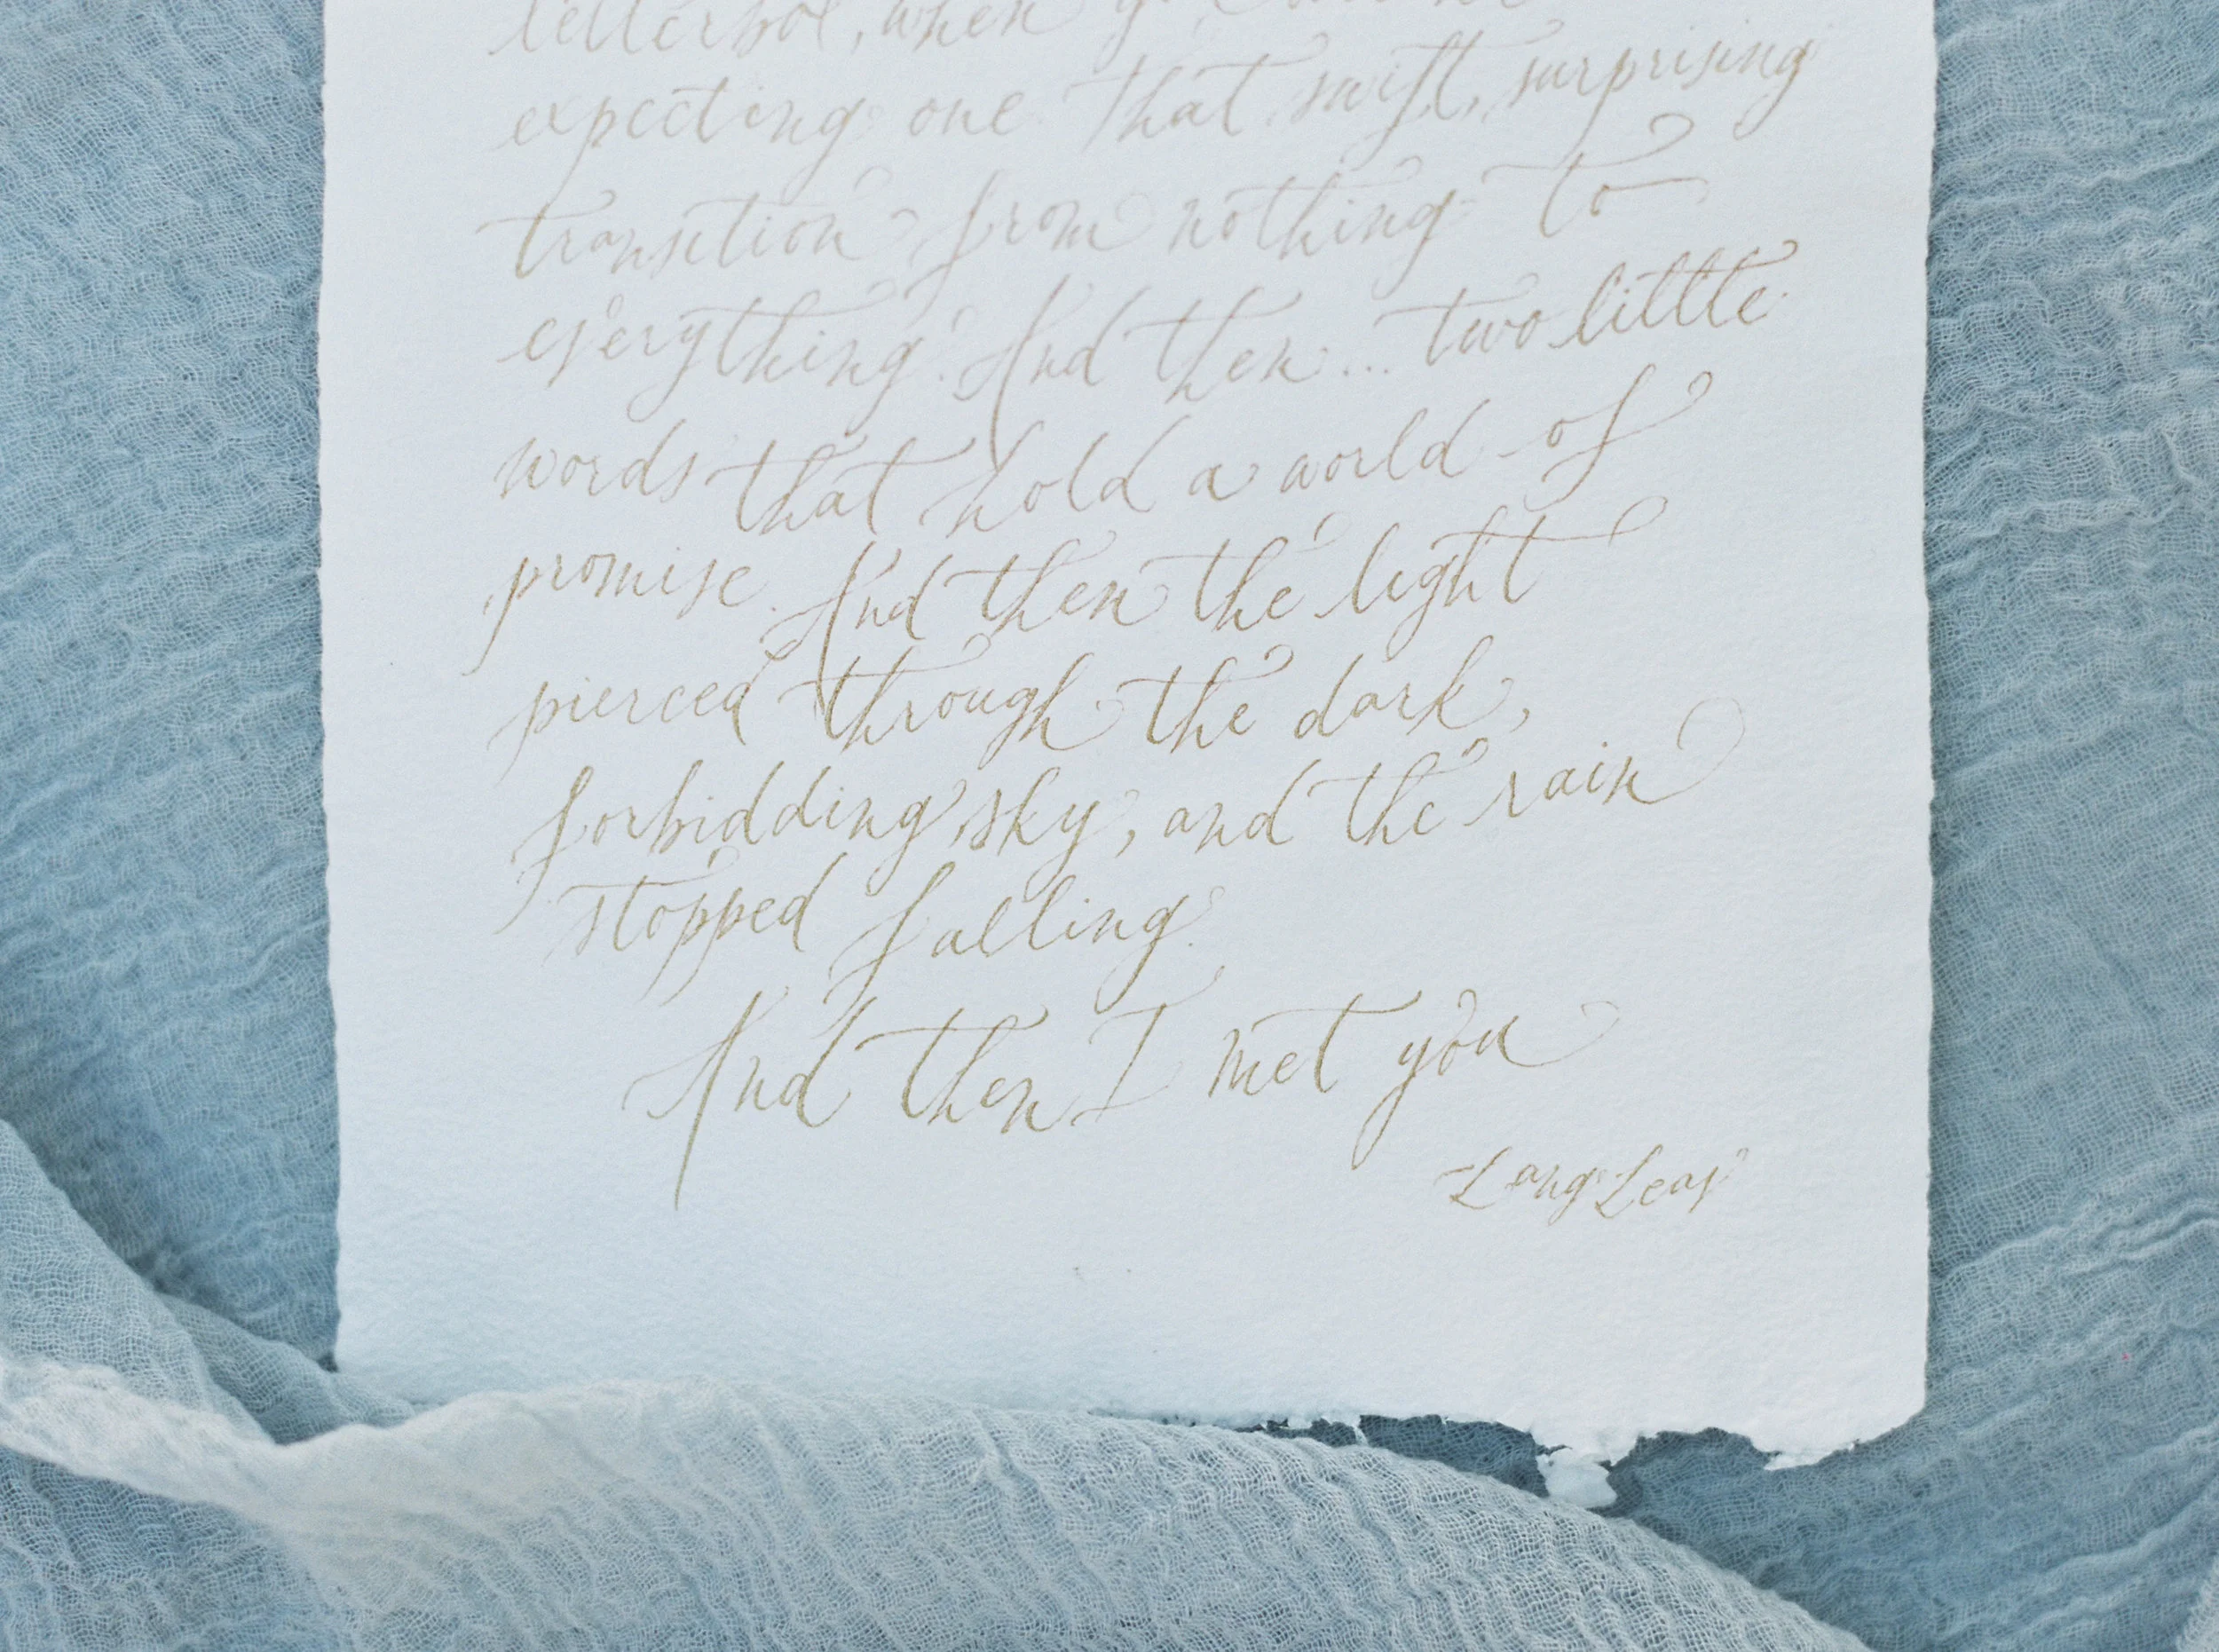 letterbox, when
expecting one. That swift, surprising
transition from nothing to
everything. And then... two little
words that hold a world of
promise. And then the light
pierced through the dark,
forbidding sky, and the rain
stopped falling.
And then I met you
Lang Leav